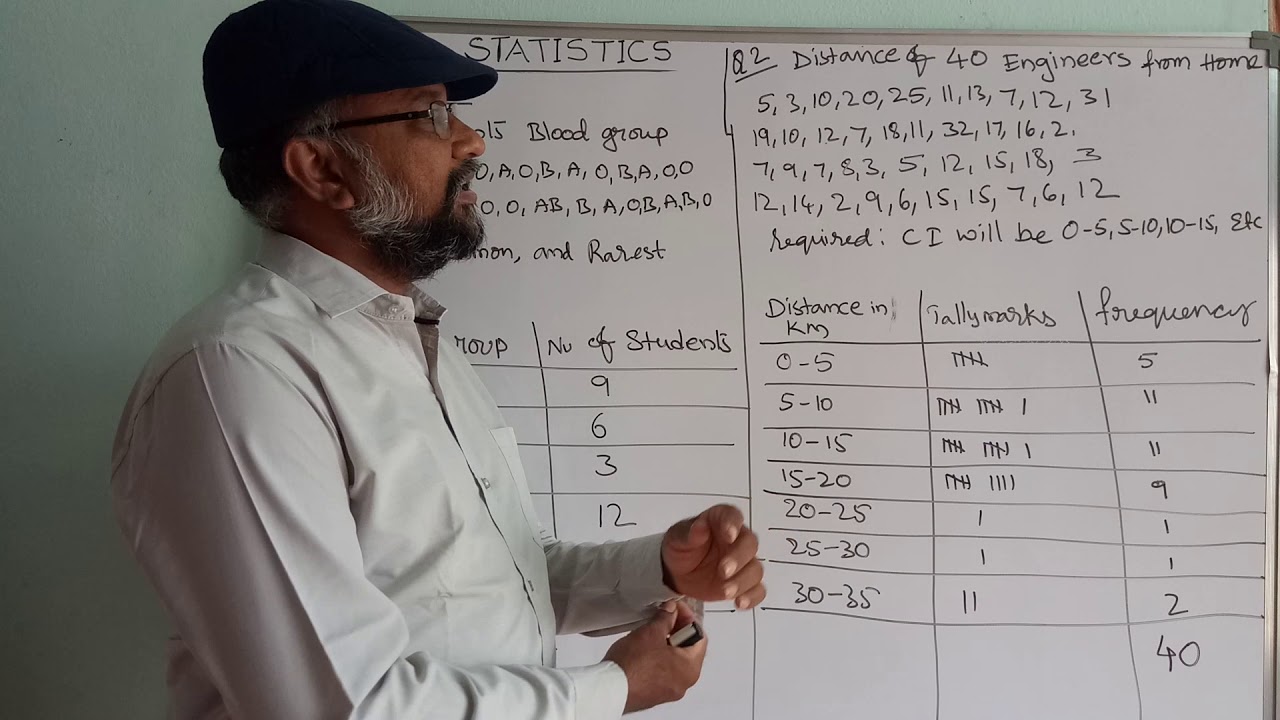 STATISTICS
Blood group
O, A, O, B, A, O, B, A, O, O
O, O, AB, B, A, O, B, A, B, O
and Rarest
No of Students
9
6
3
12
Q2 Distance of 40 Engineers from Home
5, 3, 10, 20, 25, 11, 13, 7, 12, 31
19, 10, 12, 7, 18, 11, 32, 17, 16, 2,
7, 9, 7, 8, 3, 5, 12, 15, 18, 3
12, 14, 2, 9, 6, 15, 15, 7, 6, 12
required: CI will be 0-5, 5-10, 10-15, Etc
Distance in Km Tallymarks frequency
0-5 5
5-10 11
10-15 11
15-20 9
20-25 1
25-30 1
30-35 2
40